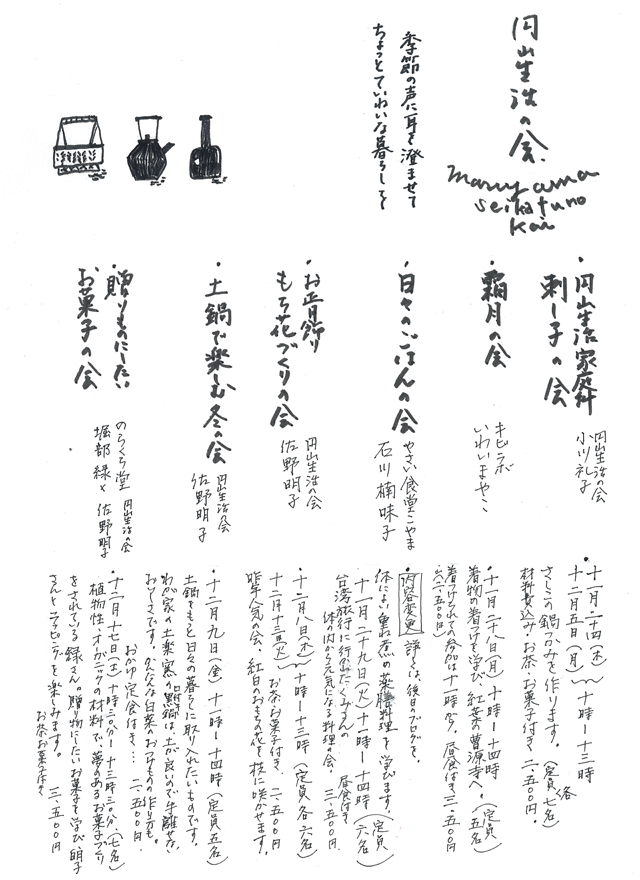 円山生活の会
maruyama
seikatuno
kai
季節の声に耳を澄ませて
ちょっとていねいな暮らしを
・円山生活家庭科
刺し子の会
円山生活の会
小川礼子
・霜月の会
キビラボ
いわいまやこ
・日々のごはんの会
やさい食堂こやま
石川楠味子
・お正月飾り
もち花づくりの会
円山生活の会
佐野明子
・土鍋で楽しむ冬の会
円山生活の会
佐野明子
・贈りものにしたい
お菓子の会
のらくち堂
堀部緑×
円山生活の会
佐野明子
・十一月二十四(木)
十二月五日(月)
十時ー十三時
さしこの鍋つかみを作ります。(定員各七名)
材料費込み・お茶・お菓子付き 二、五〇〇円。
・十一月二十八日(月)十時ー十四時
着物の着付けを学び、紅葉の曹源寺へ。(定員五名)
着つけられての参加は十一時から。昼食付き三、五〇〇円
・内容変更 詳しくは、後日のブログを。
体によい重ね煮の薬膳料理を学びます。(定員六名)
十一月二十九日(火)十一時ー十四時
台湾旅行に行かれたくみさんの 昼食付き
体の内から元気になる料理の会。三、五〇〇円
・十二月八日(木)
十二月十三日(火)
十時ー十三時(定員各六名)
お茶お菓子付き、二、五〇〇円
昨年人気の会、紅白のおもちの花を枝に咲かせます。
・十二月九日(金)十一時ー十四時(定員五名)
土鍋をもっと日々の暮らしに取り入れたいものです。
わが家の土楽窯の黒鍋は、土が良いので手離せな
おかゆ定食付き… 二、五〇〇円
・十二月十七日(土)十時三〇分ー十三時三〇分(七名)
植物性・オーガニックの材料で、夢のあるお菓子づくり
をされている緑さん。贈り物にしたいお菓子を学び、明子
さんとラッピングを楽しみます。
お茶お菓子付き 三、五〇〇円